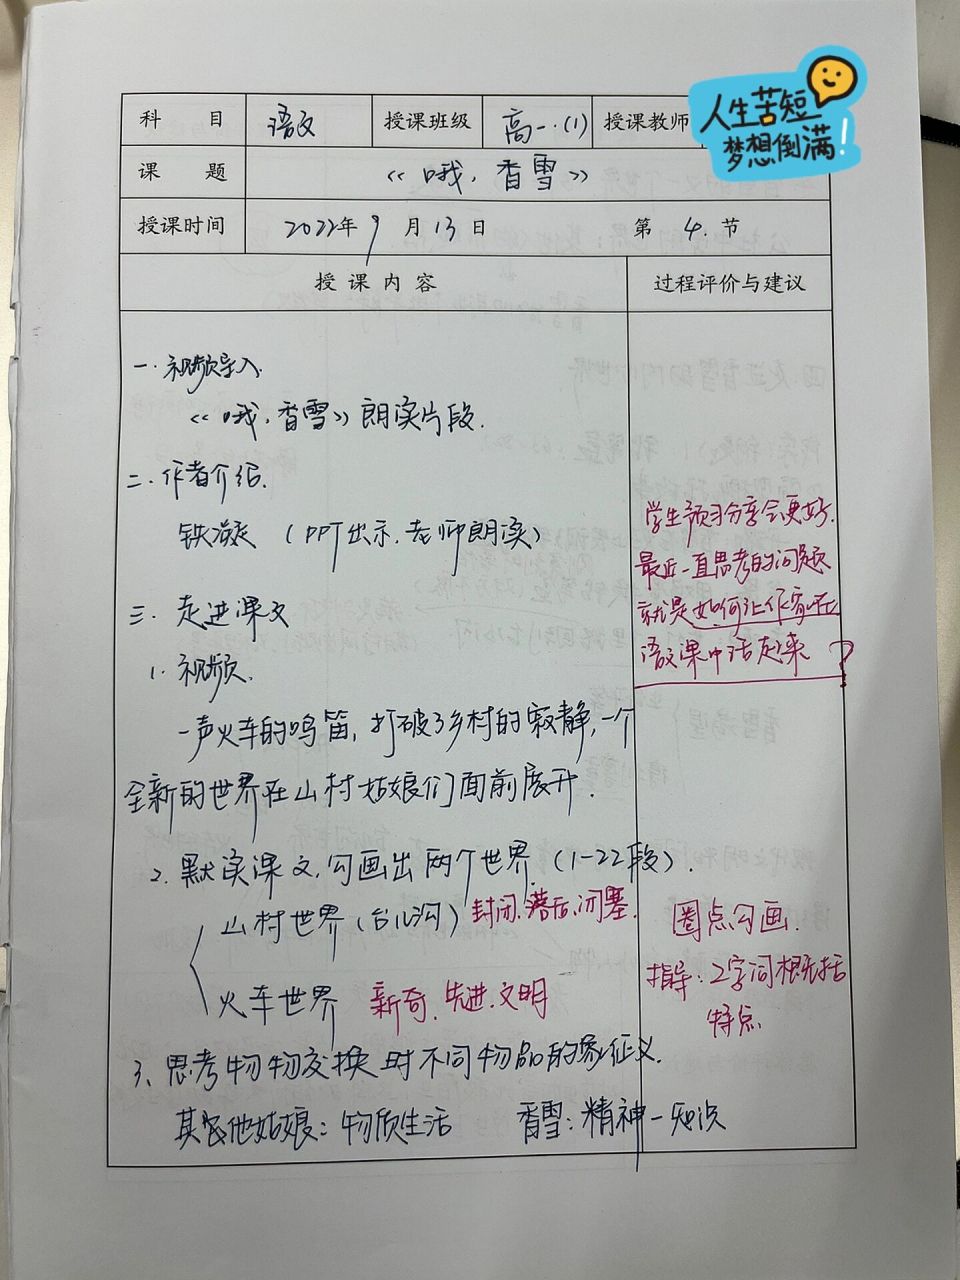 科 目 语文 授课班级 高一.(1) 授课教师
人生苦短
梦想倒满!
课 题 《哦,香雪》
授课时间 2022年9月13日 第4.节
授课内容 过程评价与建议
一.视频导入.
《哦,香雪》朗读片段.
二.作者介绍.
铁凝 (PPT出示.老师朗读)
三.走进课文
1.视频.
一声火车的鸣笛,打破了乡村的寂静,一个
全新的世界在山村姑娘们面前展开.
2.默读课文,勾画出两个世界.(1-22段).
山村世界(台儿沟) 封闭.落后.闭塞.
火车世界 新奇.先进.文明
3、思考物物交换时不同物品的象征义.
其他姑娘:物质生活 香雪:精神-知识
学生预习分享会更好.
最近一直思考的问题
就是如何让作家在
语文课中活起来?
圈点勾画.
指导:2字词概括
特点